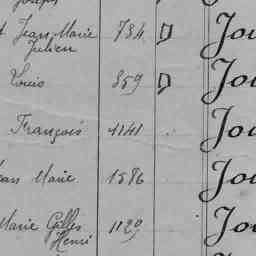 Joseph
t Jean Marie 784 D Jou
Julien
Louis 859 D Jou
François 1141 Jou
Jean Marie 1586 Jou
Marie Gilles 1129 Jou
Henri